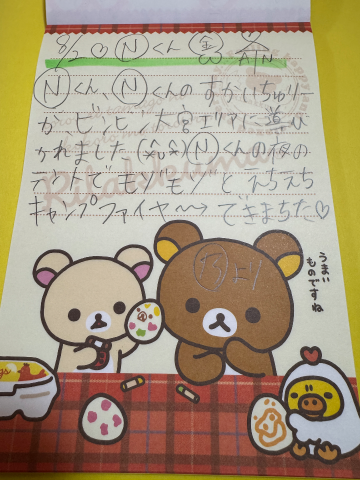 8/2 ♡ Nくん 金
Nくん、Nくんのすかいちゅりー
が、ビンビン大宮エリアに導び
かれました(^ω^)Nくんの夜の
テントでモゾモゾと えちえち
キャンプファイヤ〜→ できまちた♡
乃より
うまい
ものですね